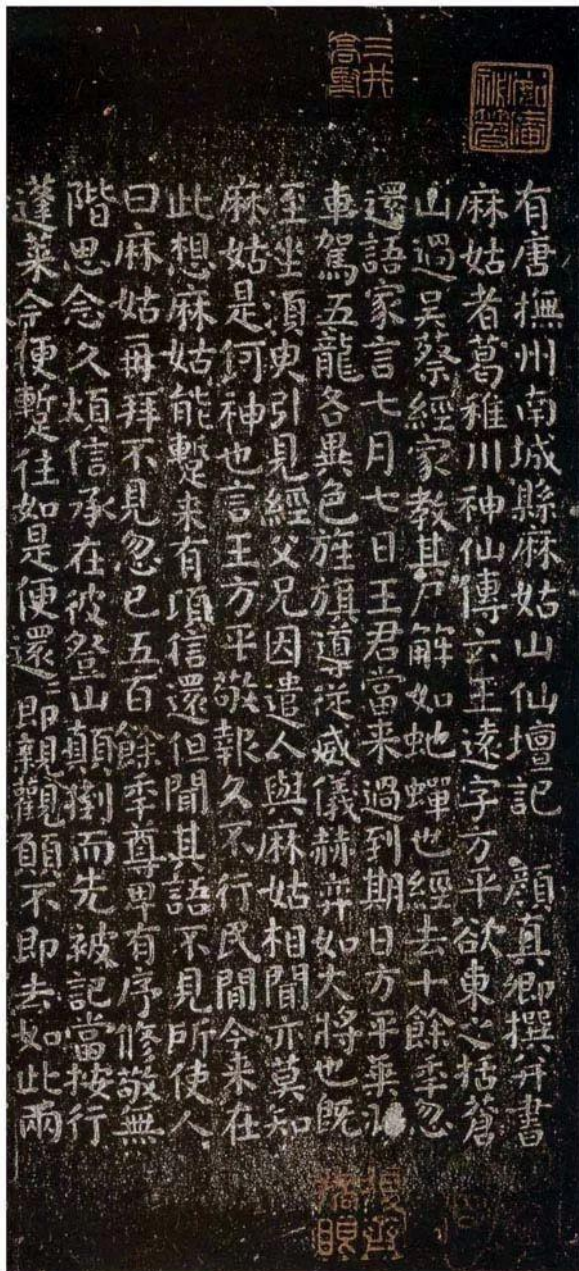 有唐撫州南城縣麻姑山仙壇記 顏真卿撰并書
麻姑者葛稚川神仙傳云王遠字方平欲東之括蒼
山過吳蔡經家教其尸解如虵蟬也經去十餘秊忽
還語家言七月七日王君當来過到期日方平乘羽
車駕五龍各異色旌旗導從威儀赫弈如大將也既
至坐須臾引見經父兄因遣人與麻姑相聞亦莫知
麻姑是何神也言王方平敬報久不行民間今来在
此想麻姑能蹔来有頃信還但聞其語不見所使人
曰麻姑再拜不見忽已五百餘秊尊卑有序修敬無
階思念久煩信承在彼登山顛倒而先被記當按行
蓬萊今便蹔往如是便還〻即親觀願不即去如此兩
三井高堅